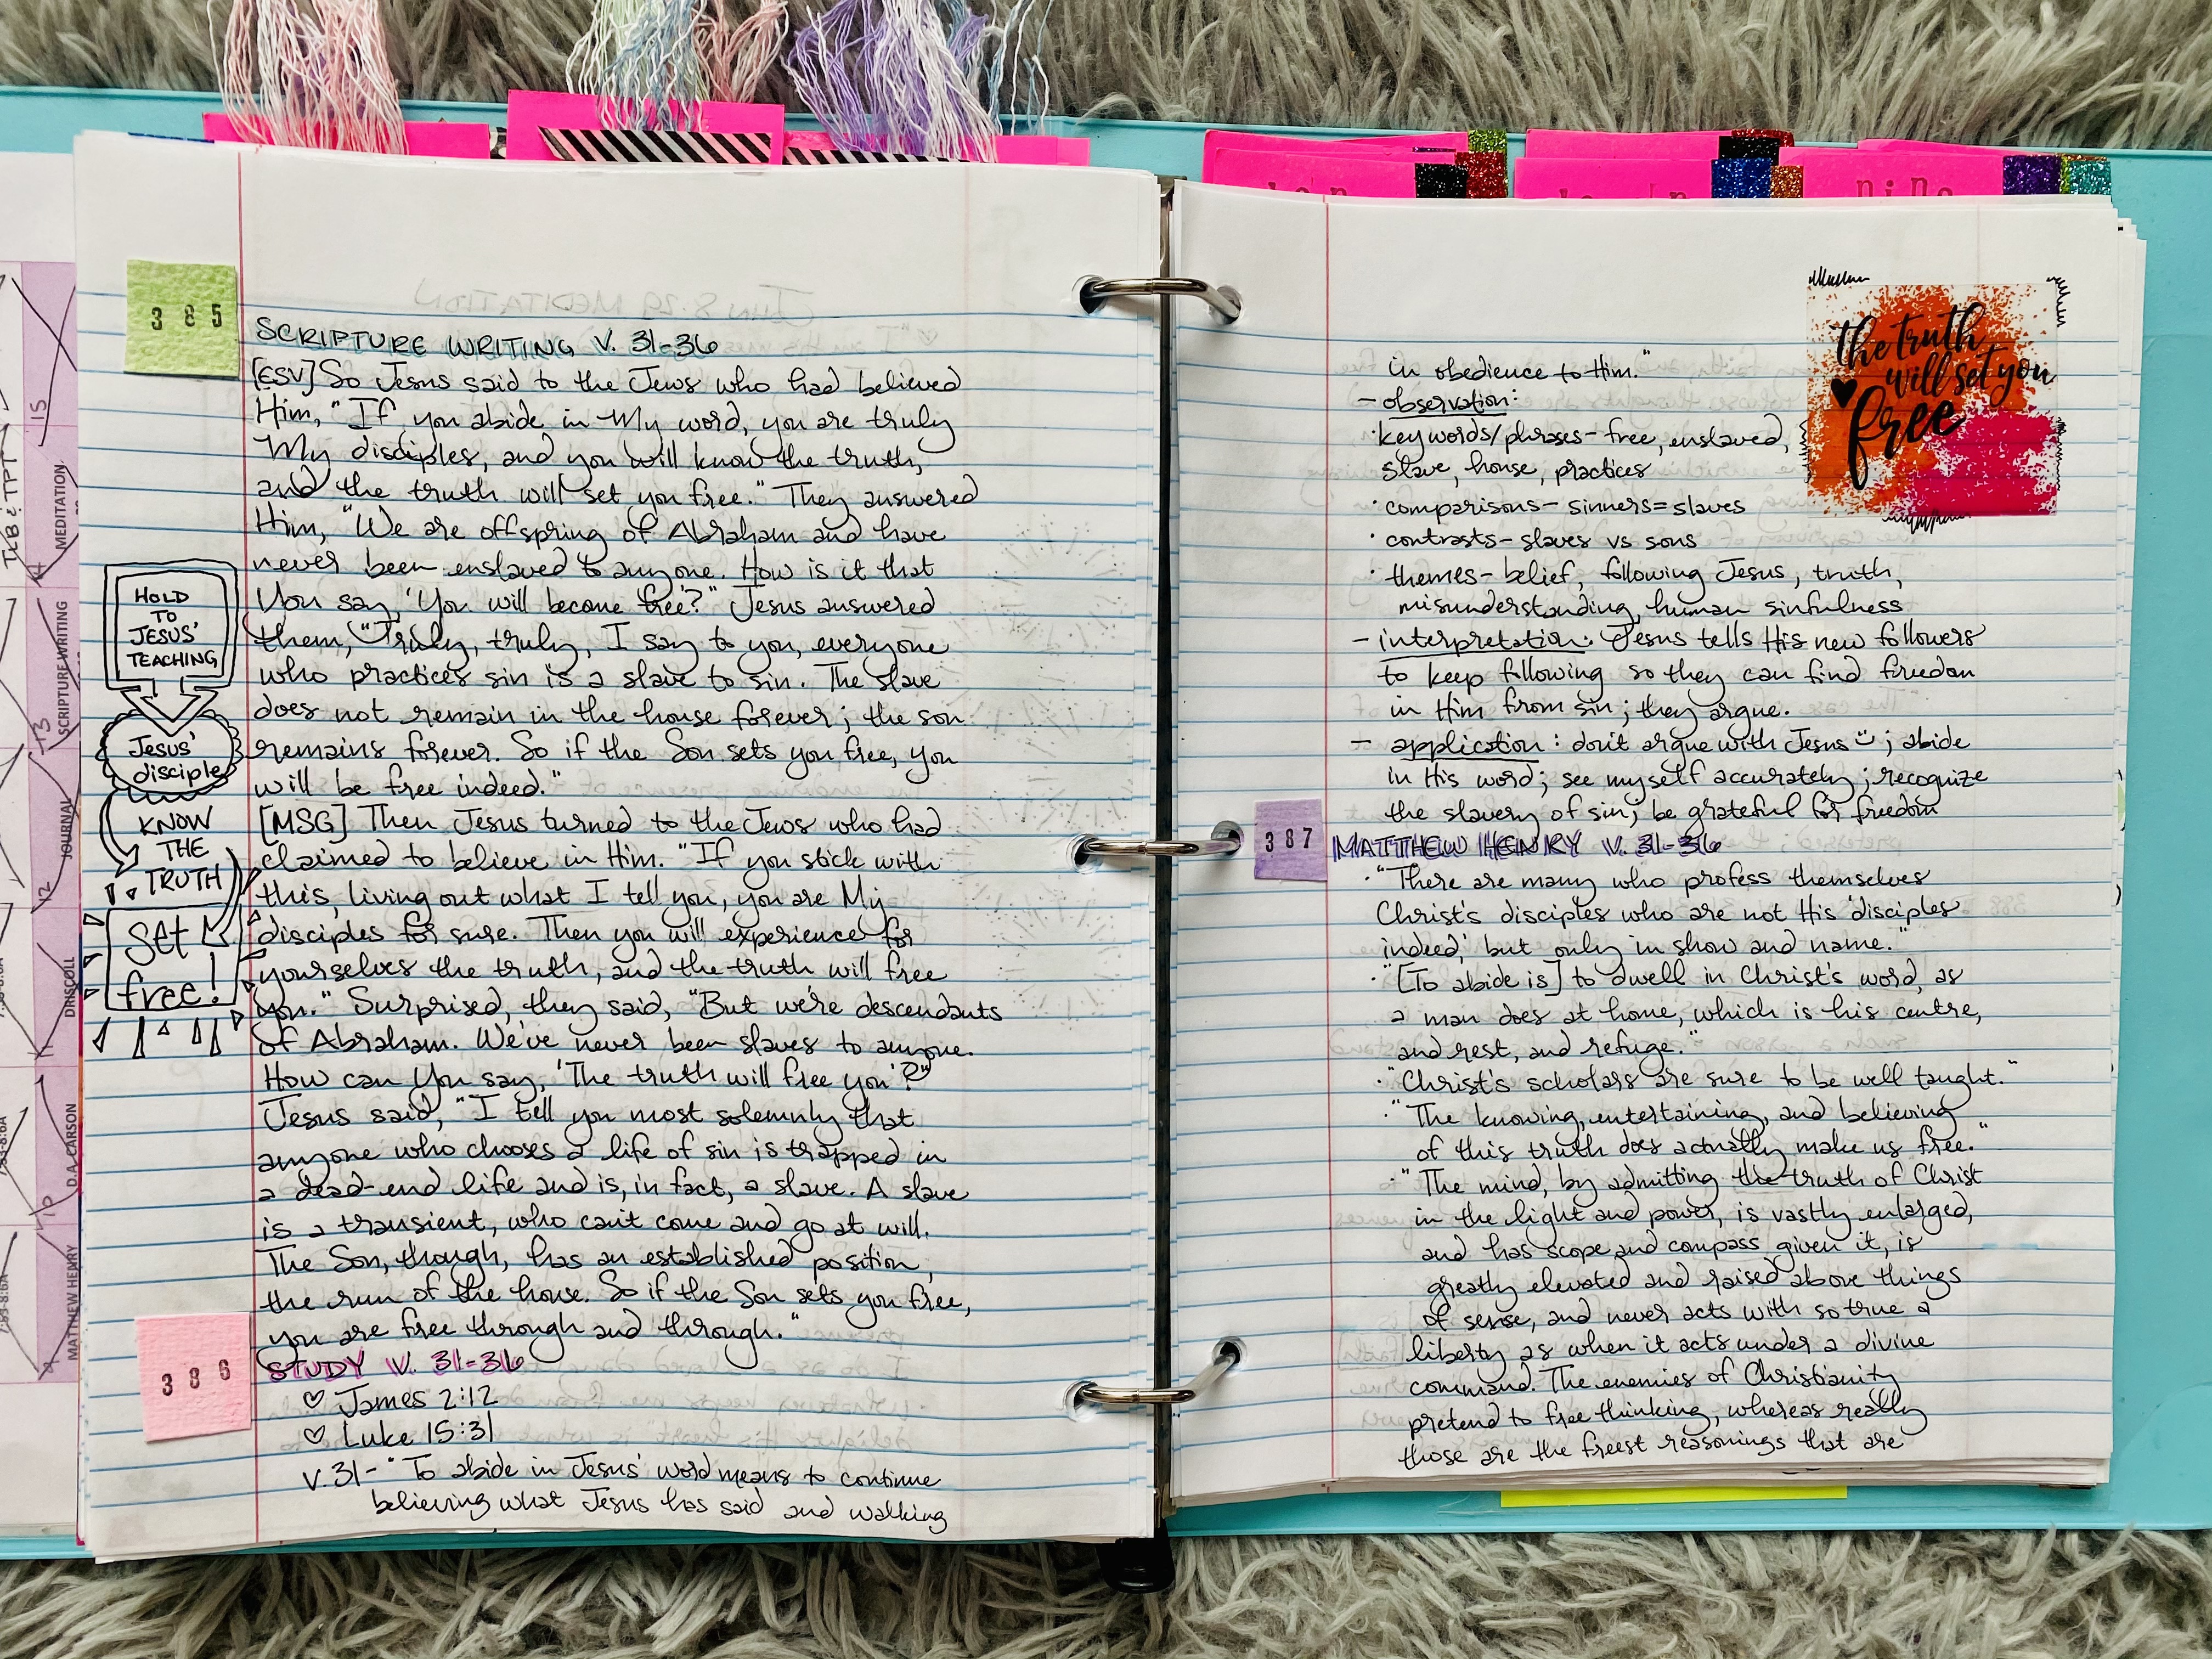 385
SCRIPTURE WRITING V. 31-36
[ESV] So Jesus said to the Jews who had believed
Him, "If you abide in My word, you are truly
My disciples, and you will know the truth,
and the truth will set you free." They answered
Him, "We are offspring of Abraham and have
never been enslaved to anyone. How is it that
You say, 'You will become free?'" Jesus answered
them, "Truly, truly, I say to you, everyone
who practices sin is a slave to sin. The slave
does not remain in the house forever; the son
remains forever. So if the Son sets you free, you
will be free indeed."
[MSG] Then Jesus turned to the Jews who had
claimed to believe in Him. "If you stick with
this, living out what I tell you, you are My
disciples for sure. Then you will experience for
yourselves the truth, and the truth will free
you." Surprised, they said, "But we're descendants
of Abraham. We've never been slaves to anyone.
How can You say, 'The truth will free you'?"
Jesus said, "I tell you most solemnly that
anyone who chooses a life of sin is trapped in
a dead-end life and is, in fact, a slave. A slave
is a transient, who can't come and go at will.
The Son, though, has an established position,
the run of the house. So if the Son sets you free,
you are free through and through."
386
STUDY V. 31-36
♡ James 2:12
♡ Luke 15:31
V.31- "To abide in Jesus' word means to continue
believing what Jesus has said and walking
HOLD
TO
JESUS'
TEACHING
Jesus'
disciple
KNOW
THE
TRUTH
Set
free!
TLB & TPT
15
MEDITATION
14
SCRIPTURE WRITING
13
JOURNAL
12
DRISCOLL
11
D.A. CARSON
10
MATTHEW HENRY
9
in obedience to Him."
- observation:
· key words/phrases- free, enslaved,
slave, house, practices
· comparisons- sinners=slaves
· contrasts- slaves vs sons
· themes- belief, following Jesus, truth,
misunderstanding, human sinfulness
- interpretation: Jesus tells His new followers
to keep following so they can find freedom
in Him from sin; they argue.
- application: don't argue with Jesus ; abide
in His word; see myself accurately; recognize
the slavery of sin; be grateful for freedom
the truth
will set you
free
387
MATTHEW HENRY V. 31-36
· "There are many who profess themselves
Christ's disciples who are not His 'disciples
indeed,' but only in show and name."
· "[To abide is] to dwell in Christ's word, as
a man does at home, which is his centre,
and rest, and refuge."
· "Christ's scholars are sure to be well taught."
· "The knowing, entertaining, and believing
of this truth does actually make us free."
· "The mind, by admitting the truth of Christ
in the light and power, is vastly enlarged,
and has scope and compass given it, is
greatly elevated and raised above things
of sense, and never acts with so true a
liberty as when it acts under a divine
command. The enemies of Christianity
pretend to free thinking, whereas really
those are the freest reasonings that are